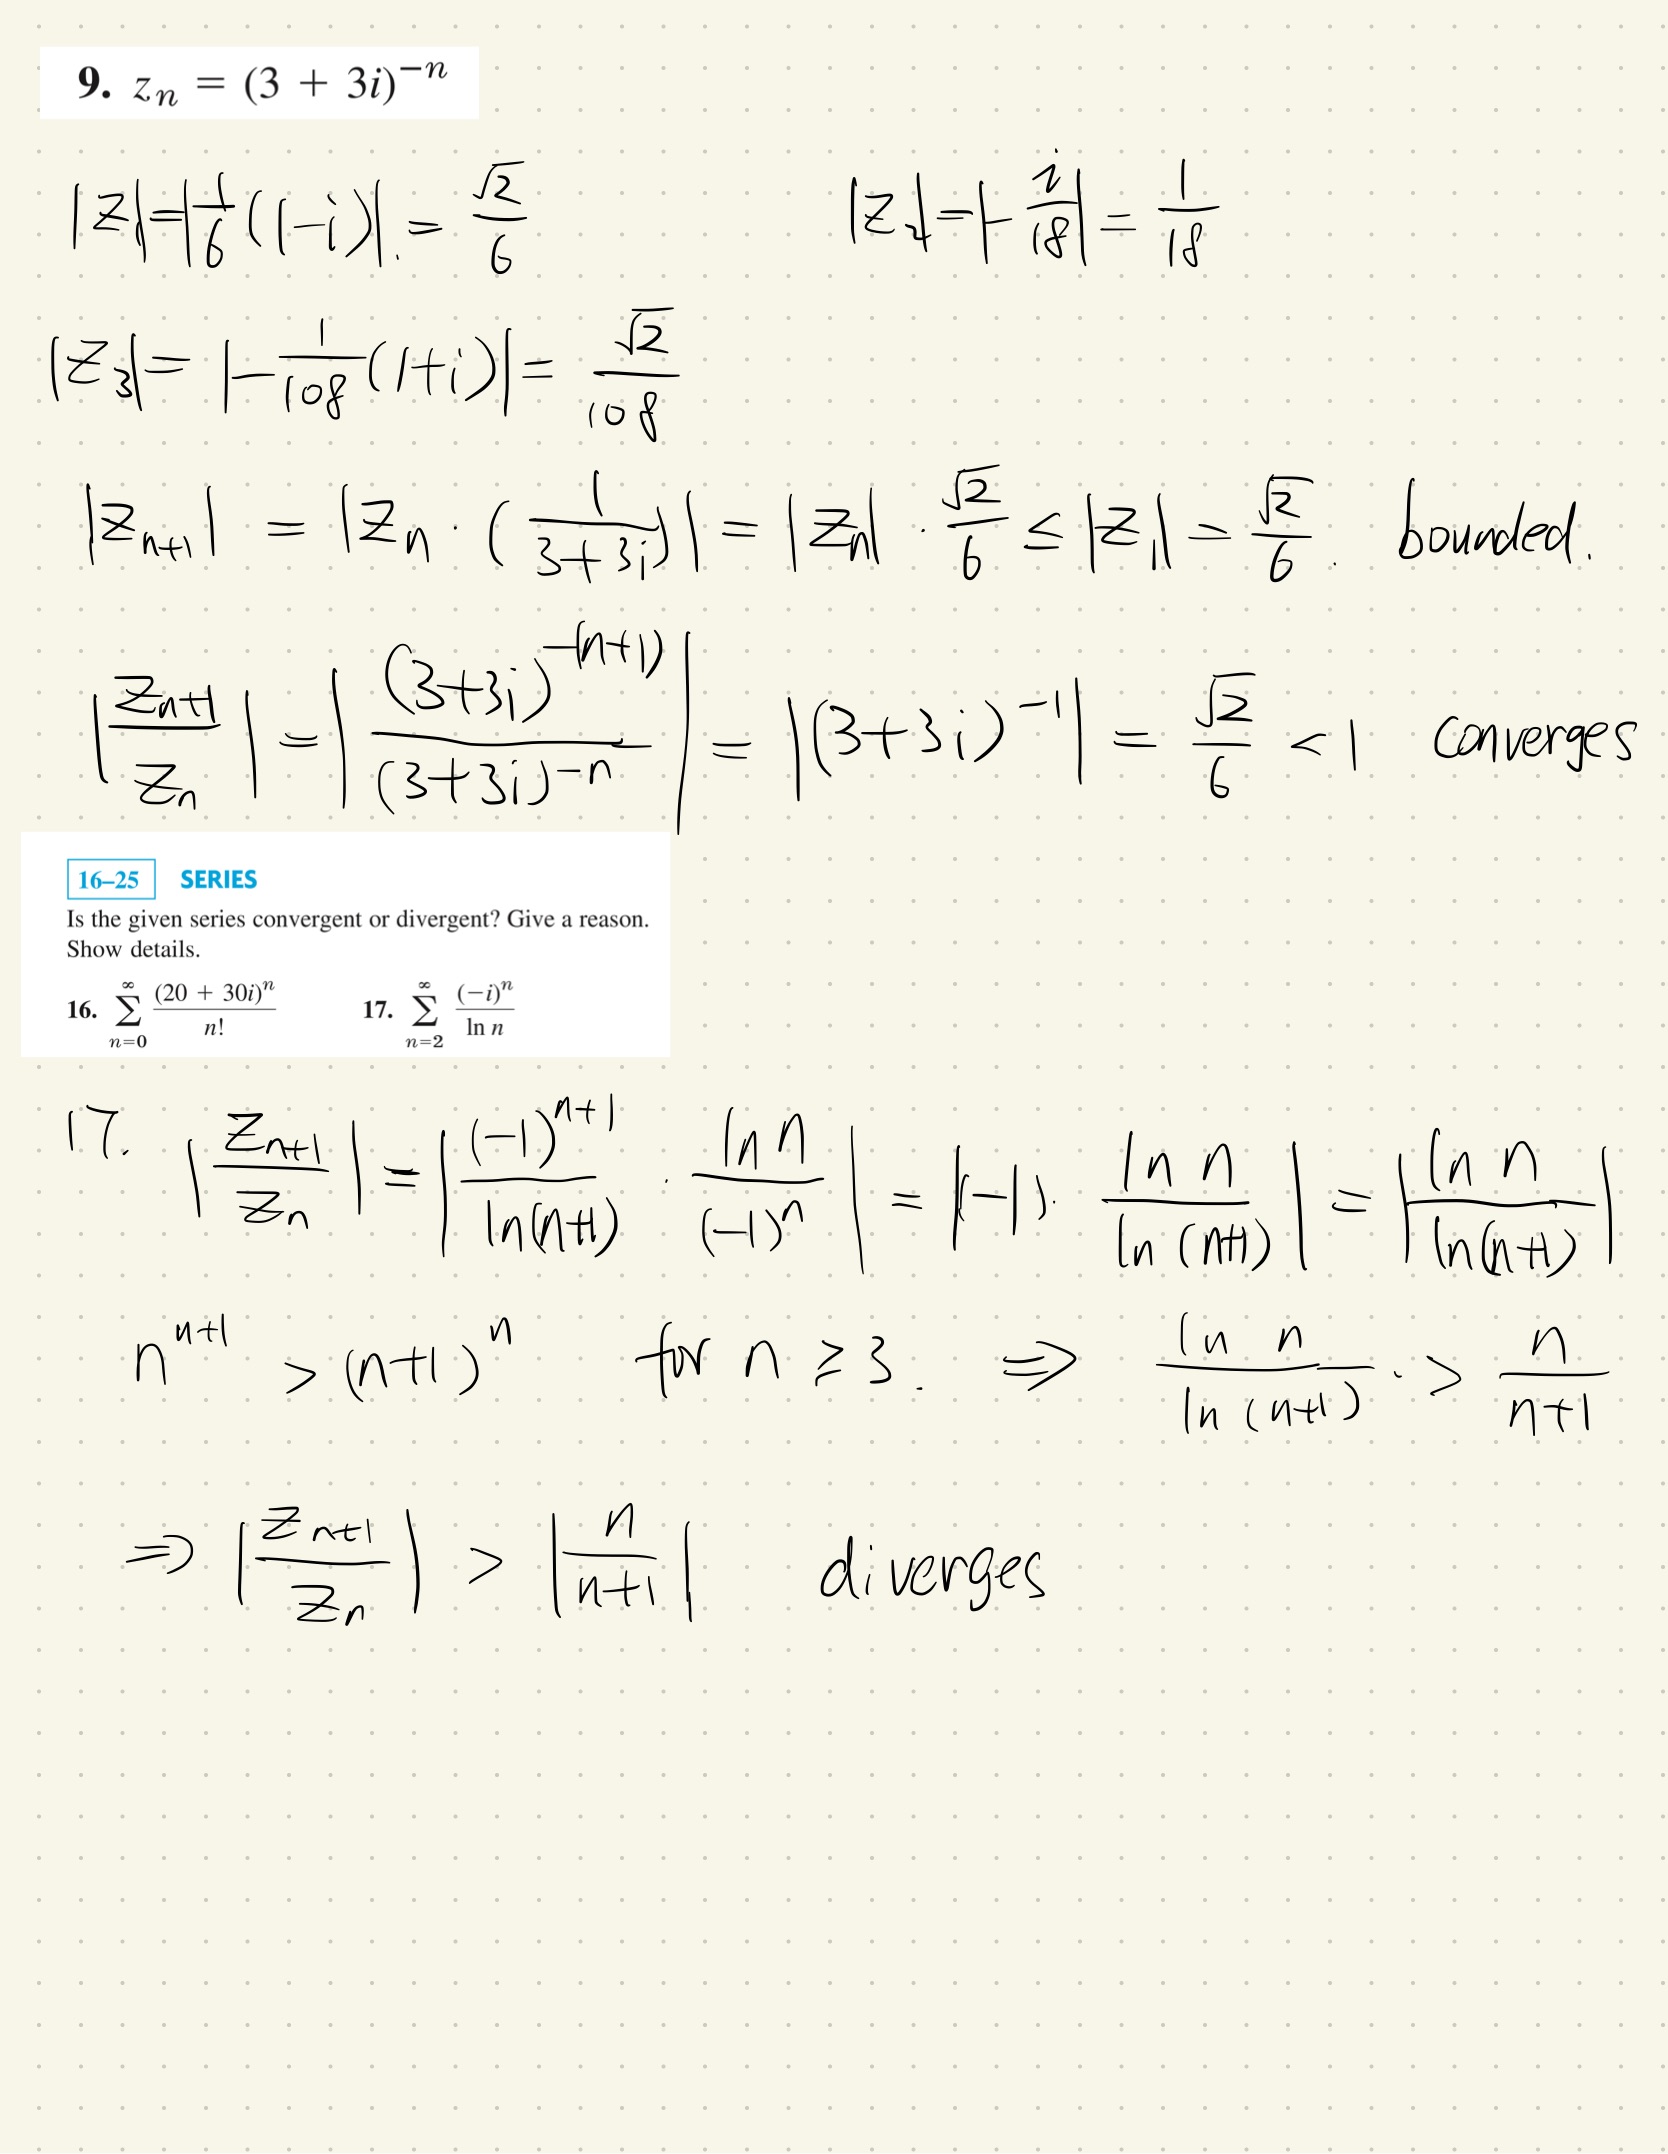 9. zₙ = (3 + 3i)⁻ⁿ
|z₁| = |1/6 (1-i)|. = √2/6    |z₂| = |- i/18| = 1/18
|z₃| = |- 1/108 (1+i)| = √2/108
|zₙ₊₁| = |zₙ · (1/(3+3i))| = |zₙ| · √2/6 ≤ |z₁| = √2/6. bounded.
|zₙ₊₁/zₙ| = |(3+3i)⁻⁽ⁿ⁺¹⁾/(3+3i)⁻ⁿ| = |(3+3i)⁻¹| = √2/6 < 1 converges
16–25 SERIES
Is the given series convergent or divergent? Give a reason.
Show details.
16. ∑_{n=0}^{∞} (20 + 30i)ⁿ/n!    17. ∑_{n=2}^{∞} (−i)ⁿ/ln n
17. |zₙ₊₁/zₙ| = |(-1)ⁿ⁺¹/ln(n+1) · ln n/(-1)ⁿ| = |(-1)· ln n/ln (n+1)| = |ln n/ln(n+1)|
nⁿ⁺¹ > (n+1)ⁿ for n ≥ 3. ⇒ ln n/ln (n+1) · > n/(n+1)
⇒ |zₙ₊₁/zₙ| > |n/(n+1)| diverges